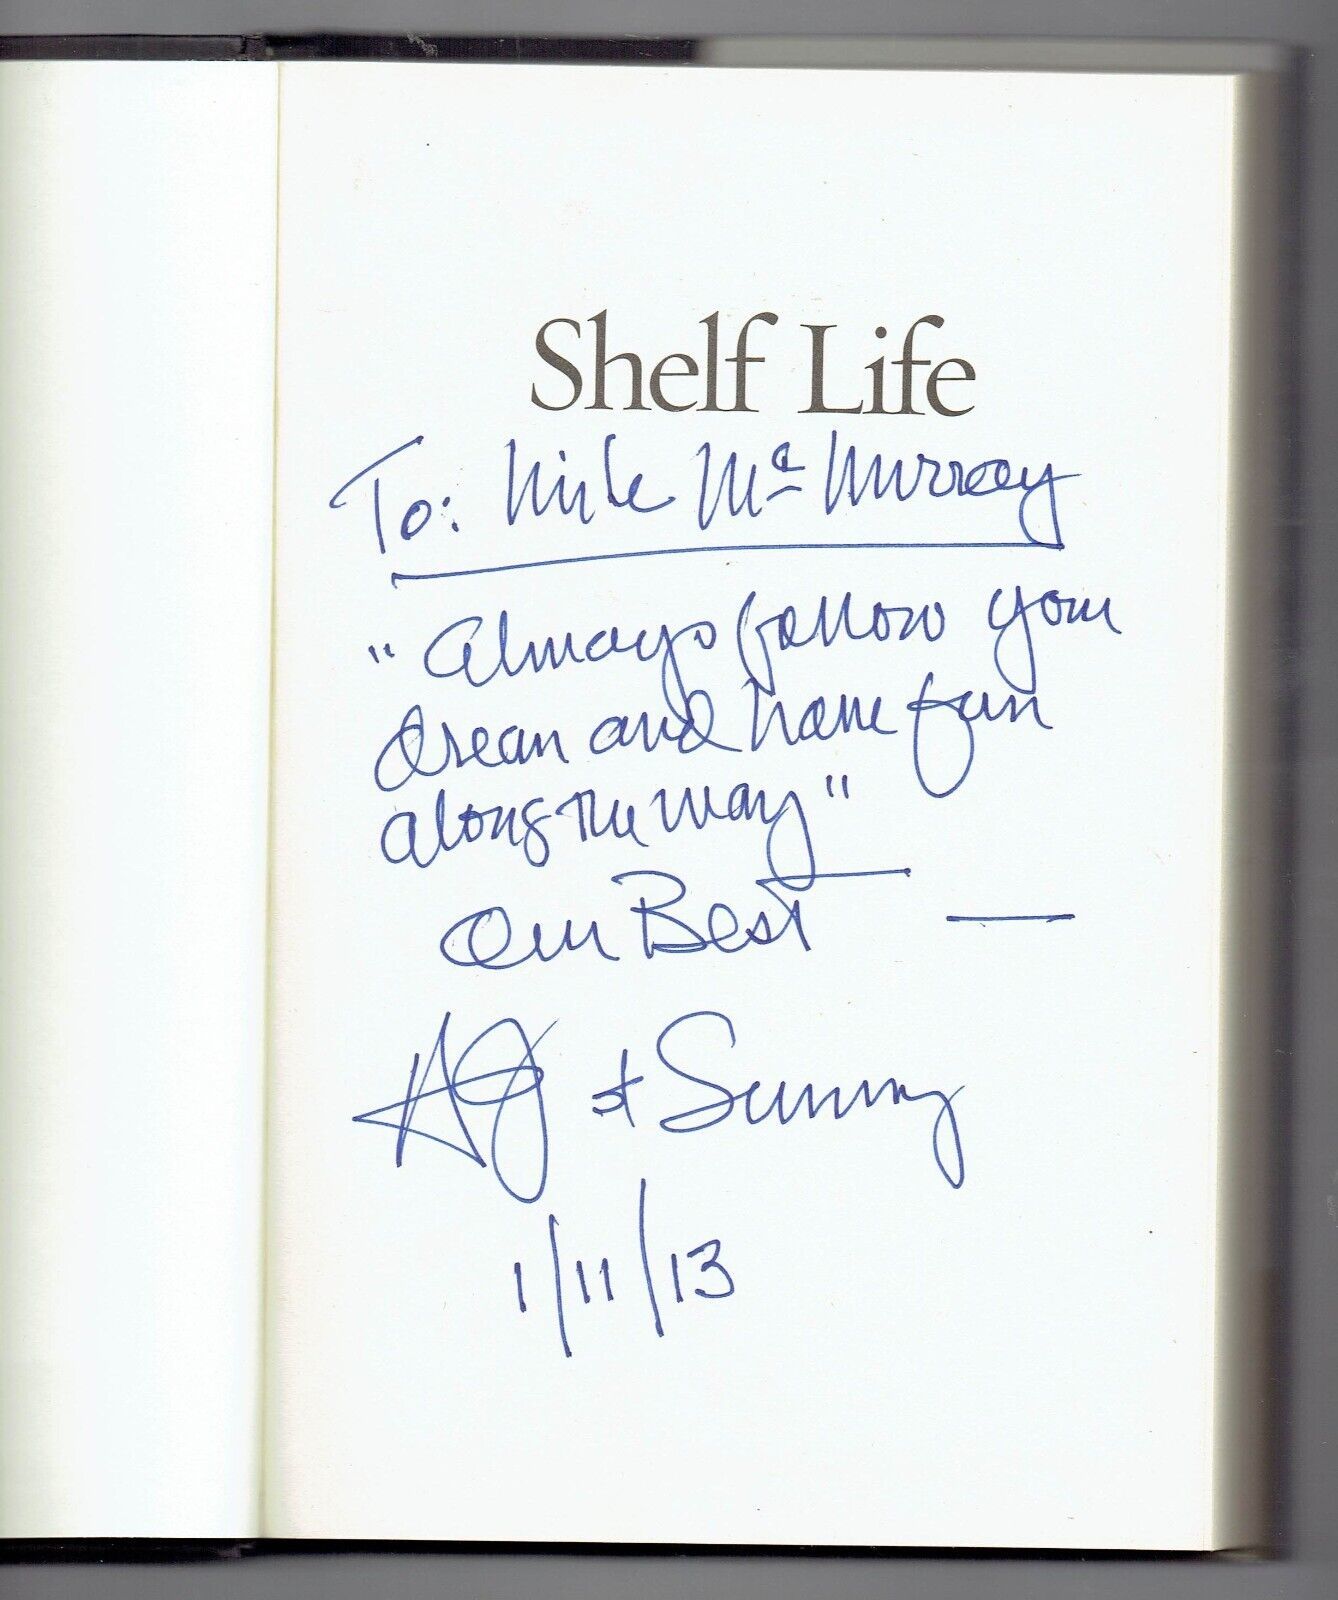 Shelf Life
To: Mike McMurray
"Always follow your
dream and have fun
along the way"
Our Best —
AJ + Sunny
1/11/13